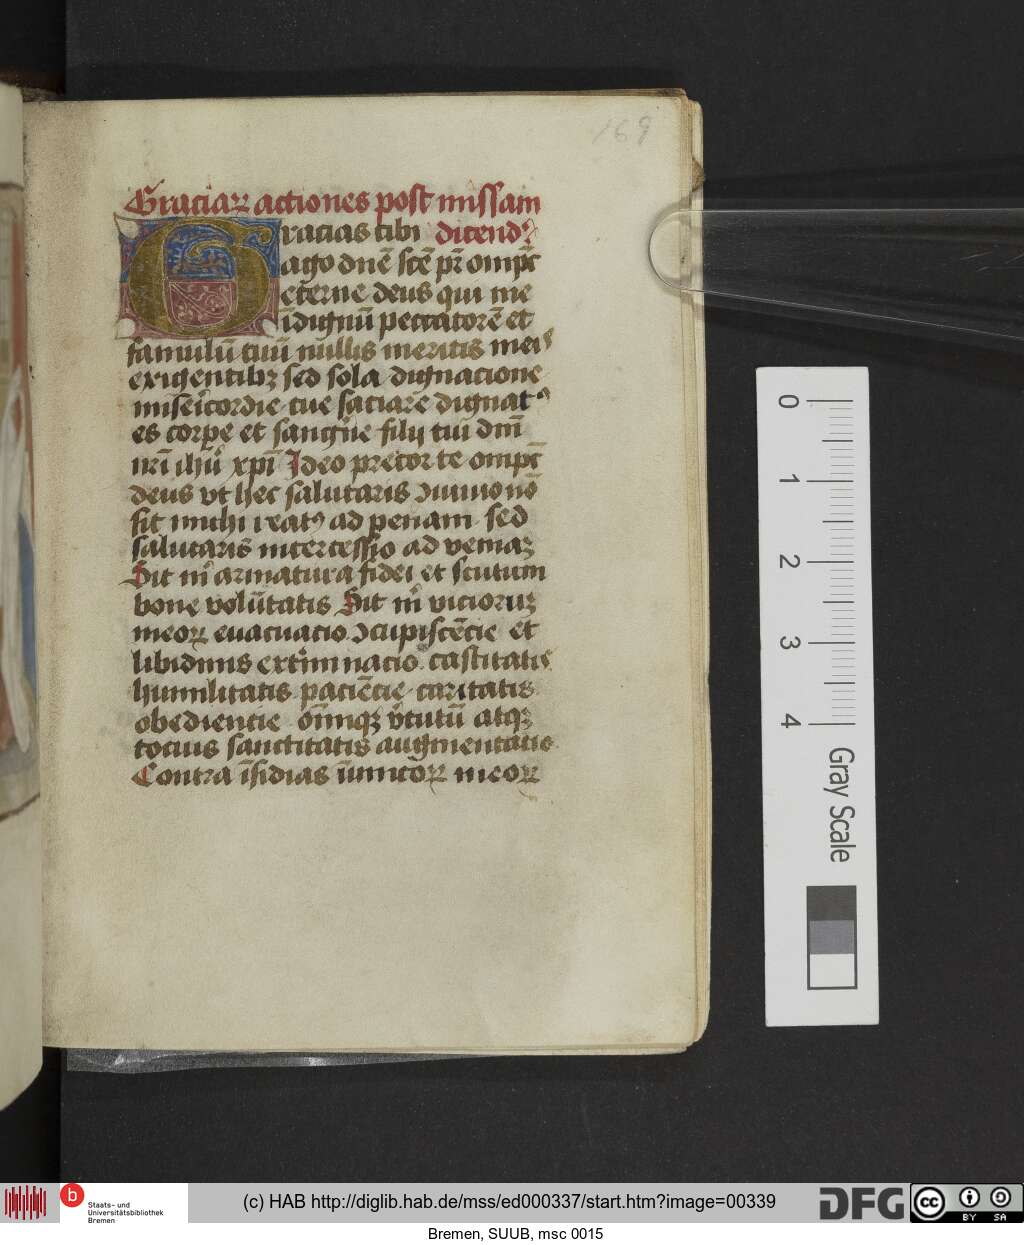 169
Graciaꝝ actiones post missam
Gracias tibi dicendꝰ
ago dnē scē pr̄ omp̄s
et̄erne deus qui me
īdignū peccatorē et
famulū tuū nullis meritis meis
exigentibꝫ sed sola dignacione
misericordie tue saciare dignatꝰ
es corpe et sanguīe filij tui dm̄
nr̄i ihū xp̄i Ideo precor te omp̄s
deus vt hec salutaris ꝯmunio nō
sit michi reatꝰ ad penam sed
salutaris intercessio ad veniaꝫ
Sit m̄ armatura fidei et scutum
bone volūtatis Sit m̄ viciorum
meoꝝ euacuacio ꝯcupiscēcie et
libidinis exterminacio castitatis
humilitatis paciēcie caritatis
obediencie om̄iqꝫ v̄tutū atqꝫ
tocius sanctitatis augmentatio
Contra īsidias inimicoꝝ meoꝝ
0
1
2
3
4
Gray Scale
b
Staats- und
Universitätsbibliothek
Bremen
(c) HAB http://diglib.hab.de/mss/ed000337/start.htm?image=00339
DFG
cc
BY SA
Bremen, SUUB, msc 0015